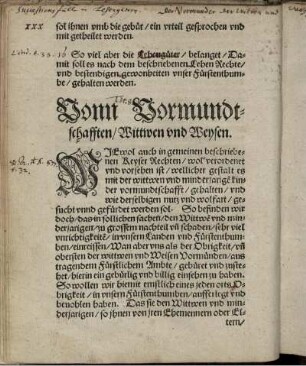 XXX
sol ihnen vmb die gebür/ ein vrteil gesprochen vnd
mit getheilet werden.
So viel aber die Lehengüter/ belanget/ Da-
mit soll es nach dem beschriebenen Lehen Rechte/
vnd bestendigen gewonheiten vnser Fürstenthum-
be/ gehalten werden.
Vonn Vormundt-
schafften/ Wittwen vnd Weysen.
WIewol auch in gemeinen beschriebe-
nen Keyser Rechten/ wol verordenet
vnd vorsehen ist/ wellicher gestalt es
mit der wittwen vnd minderjarigē kin
der vormundtschafft/ gehalten/ vnd
wie derselbigen nutz vnd wolfart/ ge-
sucht vnnd gefürdert werden sol. So befinden wir
doch/ das in sollichen sachen/ den Wittwē vnd min-
derjarigen/ zu grossem nachteil vñ schaden/ sehr viel
vnrichtigkeitē/ in vnsern Landen vnd Fürstenthum-
ben/ einreissen/ Wan aber vns als der Obrigkeit/ vñ
obersten der wittwen vnd Weisen Vormünden/ aus
tragendem Fürstlichem Ambte/ gebüret vnd zuste-
het/ hierin ein gebürlig vnd billig einsehen zu haben.
So wollen wir hiemit ernstlich eines jeden orts O-
brigkeit/ in vnsern Fürstenthumben/ aufferlegt vnd
beuohlen haben. Das sie den Wittwen vnd min-
derjarigen/ so jhnen von jren Ehemennern oder El-
tern/